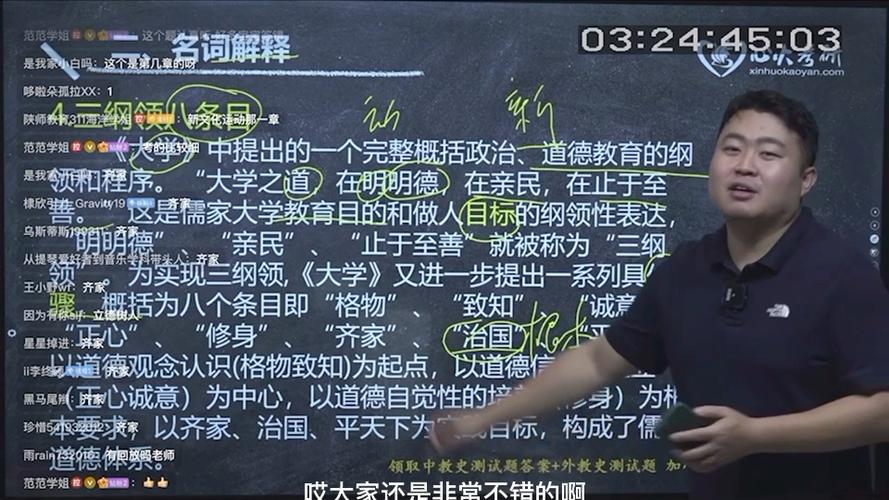 范范学姐
二、名词解释
03:24:45:03
xinhuokaoyan.com
是我家小白吗：这个是第几章的呀
哆啦朵孤拉XX：1
4.三纲领八条目
陕师教育311海洋学姐 新文化运动那一章
范范学姐 考的比较细
《大学》中提出的一个完整概括政治、道德教育的纲
领和程序。“大学之道，在明明德，在亲民，在止于至
善。”这是儒家大学教育目的和做人目标的纲领性表达，
Gravity19 齐家
“明明德”、“亲民”、“止于至善”就被称为“三纲
从提琴爱好者到音乐学科带头人：齐家
领”。为实现三纲领，《大学》又进一步提出一系列具
王小野wr：齐家
骤 概括为八个条目即“格物”、“致知”、“诚意
立德树人
“正心”、“修身”、“齐家”、“治国”、“平
星星掉进：齐家
以道德观念认识(格物致知)为起点，以道德信
ii李终 齐家
（正心诚意）为中心，以道德自觉性的培 （修身）为根
黑马尾辫：齐家
本要求，以齐家、治国、平天下为实践目标，构成了儒
齐家
道德体系。
有回放吗老师
范范学姐
领取中教史测试题答案+外教史测试题 加
哎大家还是非常不错的啊